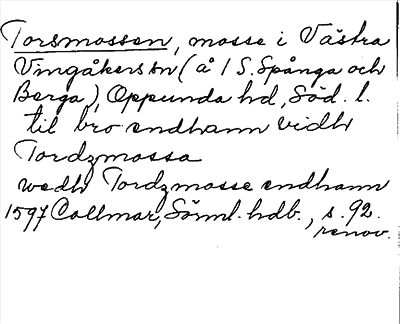 Torsmossen, mosse i Västra
Vingåkers sn (å 1 S. Spånga och
Berga), Oppunda hd, Söd. l.
til bro endhann vidh
Tordzmossa
wedh Tordzmosse endhann
1597 Collmar, Sörml. hdb., s. 92.
renov.